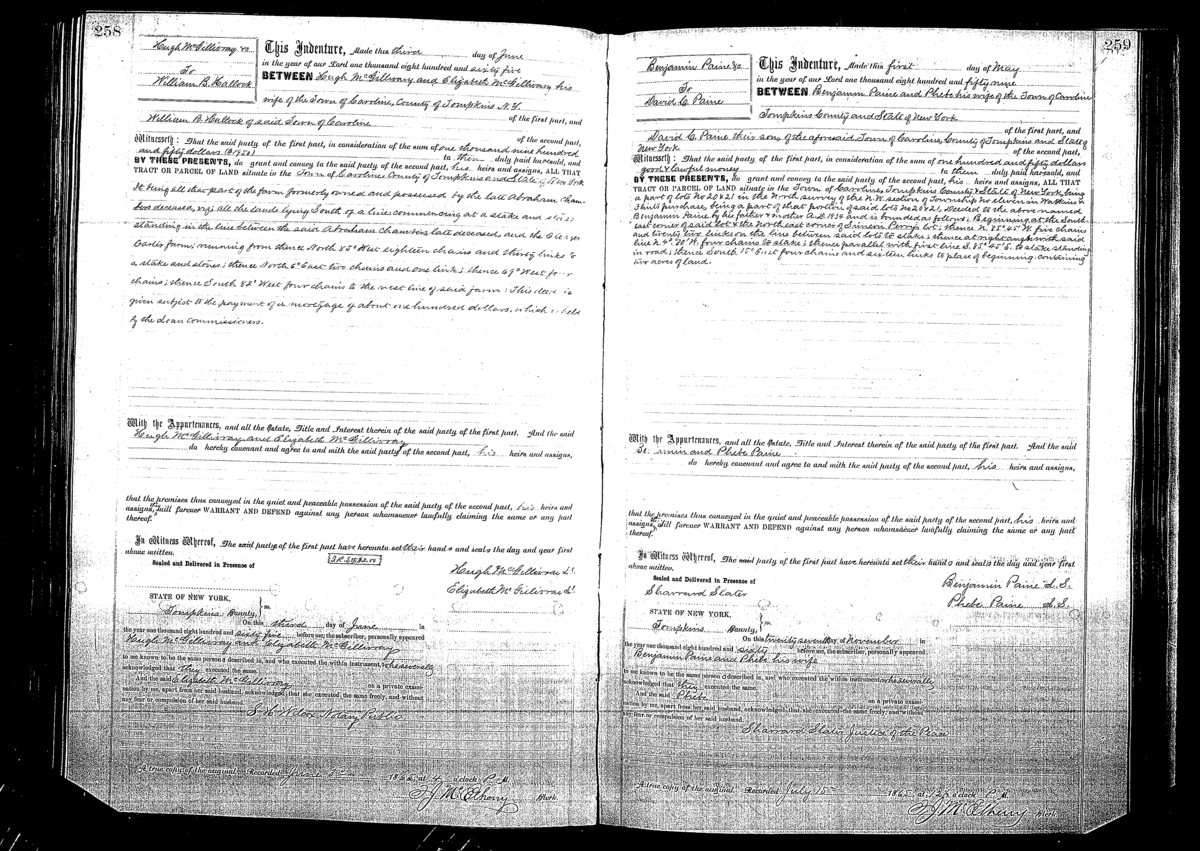 258
Hugh McGillivray &a
To
William B. Hallock
This Indenture, Made this third day of June
in the year of our Lord one thousand eight hundred and sixty five
BETWEEN Hugh McGillivray and Elizabeth McGillivray his
wife of the Town of Caroline, County of Tompkins N.Y.
of the first part, and
William B. Hallock of said Town of Caroline
of the second part,
Witnesseth: That the said party of the first part, in consideration of the sum of one thousand nine hundred
and fifty dollars ($1950) to them duly paid haresuld, and
BY THESE PRESENTS, do grant and convey to the said party of the second part, his heirs and assigns, ALL THAT
TRACT OR PARCEL OF LAND situate in the Town of Caroline County of Tompkins and State of New York
It being all that part of the farm formerly owned and possessed by the late Abraham Cham
bers deceased, viz; all the lands lying South of a line commencing at a stake and stones
standing in the line between the said Abraham Chambers late deceased, and the
farm; running from thence North 85° West eighteen chains and thirty links to
a stake and stones; thence North 5° East two chains and one link; thence 69° West four
chains; thence South 82° West four chains to the west line of said farm: This deed is
given subject to the payment of a mortgage of about one hundred dollars, which is held
by the Loan commissioners.
With the Appurtenances, and all the Estate, Title and Interest therein of the said party of the first part. And the said
Hugh McGillivray and Elizabeth McGillivray
do hereby covenant and agree to and with the said party of the second part, his heirs and assigns,
that the premises thus conveyed in the quiet and peaceable possession of the said party of the second part, his heirs and
assigns, they will forever WARRANT AND DEFEND against any person whomsoever lawfully claiming the same or any part
thereof.
In Witness Whereof, The said party of the first part have hereunto set their hands and seals the day and year first
above written.
Sealed and Delivered in Presence of
Hugh McGillivray L.S.
Elizabeth McGillivray L.S.
STATE OF NEW YORK,
Tompkins County, } ss.
On this third day of June in
the year one thousand eight hundred and sixty five before me, the subscriber, personally appeared
Hugh McGillivray and Elizabeth McGillivray
to me known to be the same persons described in, and who executed the within instrument, who severally
acknowledged that they executed the same.
And the said Elizabeth McGillivray on a private exami-
nation by me, apart from her said husband, acknowledged that she executed the same freely, and without
any fear or compulsion of her said husband.
Notary Public
A true copy of the original Recorded June 1865, at 4 o'clock P. M.
J McElheny Clerk
259
Benjamin Paine &a
To
David C. Paine
This Indenture, Made this first day of May
in the year of our Lord one thousand eight hundred and fifty nine
BETWEEN Benjamin Paine and Phebe his wife of the Town of Caroline
Tompkins County and State of New York
of the first part, and
David C. Paine their son of the aforesaid Town of Caroline, County of Tompkins and State of
New York of the second part,
Witnesseth: That the said party of the first part, in consideration of the sum of one hundred and fifty dollars
good & lawful money to them duly paid haresold, and
BY THESE PRESENTS, do grant and convey to the said party of the second part, his heirs and assigns, ALL THAT
TRACT OR PARCEL OF LAND situate in the Town of Caroline Tompkins County & State of New York, being
a part of lots No 20 & 21 in the North survey of the N.W. section of Township No eleven in Watkins &
Flints purchase, being a part of that portion of said lots No 20 & 21, deeded to the above named
Benjamin Paine by his father & mother A.D. 1834 and is bounded as follows: Beginning at the South
east corner of said lot & the North east corner of Simeon Perrys lot; thence N. 85° 45' W. five chains
and twenty two links on the line between said lots to stake; thence at right angle with said
line N. 4° 20' W. four chains to stake; thence parallel with first line S. 85° 45' E. to stake standing
in road; thence South 15° East four chains and sixteen links to place of beginning. containing
two acres of land.
With the Appurtenances, and all the Estate, Title and Interest therein of the said party of the first part. And the said
amin and Phebe Paine
do hereby covenant and agree to and with the said party of the second part, his heirs and assigns,
that the premises thus conveyed in the quiet and peaceable possession of the said party of the second part, his heirs and
assigns, will forever WARRANT AND DEFEND against any person whomsoever lawfully claiming the same or any part
thereof.
In Witness Whereof, The said party of the first part have hereunto set their hands and seals the day and year first
above written.
Sealed and Delivered in Presence of
Sharrard Slater
Benjamin Paine L.S.
Phebe Paine L.S.
STATE OF NEW YORK,
Tompkins County, } ss.
On this twenty seventh day of November in
the year one thousand eight hundred and sixty before me, the subscriber, personally appeared
Benjamin Paine and Phebe his wife
to me known to be the same persons described in, and who executed the within instrument, who severally
acknowledged that they executed the same.
And the said Phebe on a private exami-
nation by me, apart from her said husband, acknowledged that she executed the same freely, and without
any fear or compulsion of her said husband.
Sharrard Slater Justice of the Peace
A true copy of the original Recorded July 15th 1865 at 12½ o'clock P. M.
J McElheny Clerk